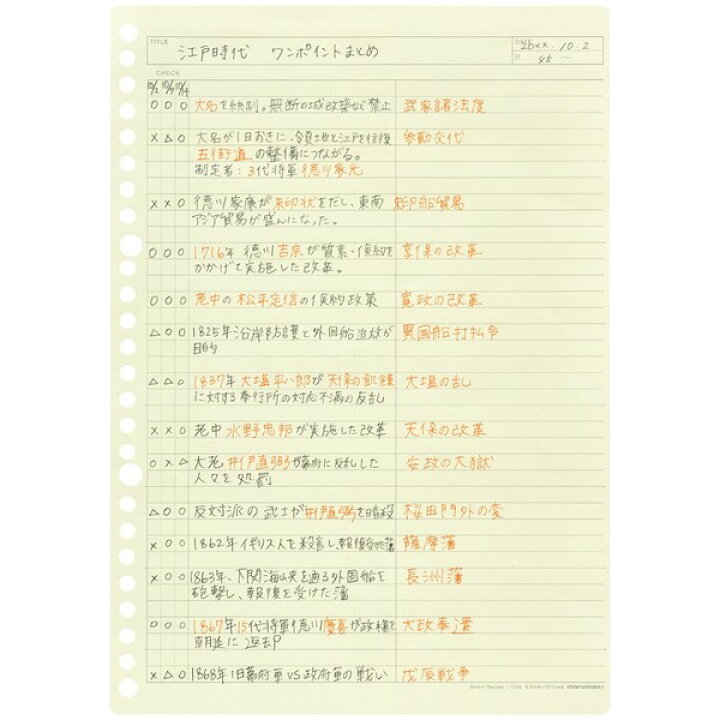 TITLE 江戸時代 ワンポイントまとめ DATE 20xx. 10. 2
P. 45 ～
CHECK
10/2 10/7 10/14
○ ○ ○ 大名を統制。無断の城改築など禁止 武家諸法度
× △ ○ 大名が1日おきに、領地と江戸を往復 参勤交代
五街道の整備につながる。
制定者：3代将軍徳川家光
× × ○ 徳川家康が朱印状をだし、東南 朱印船貿易
アジア貿易が盛んになった。
○ ○ ○ 1716年 徳川吉宗が質素・倹約を 享保の改革
かかげて実施した改革。
○ ○ ○ 老中の松平定信の倹約政策 寛政の改革
△ ○ ○ 1825年沿岸防護と外国船追放が 異国船打払令
目的
△ △ ○ 1837年 大塩平八郎が天保の飢饉 大塩の乱
に対する奉行所の対応不満の反乱
× × ○ 老中 水野忠邦が実施した改革 天保の改革
○ × △ 大老 井伊直弼が幕府に反乱した 安政の大獄
人々を処罰
△ ○ ○ 反対派の武士が井伊直弼を暗殺 桜田門外の変
× ○ ○ 1862年イギリス人を殺害し、報復受けた藩 薩摩藩
× ○ ○ 1863年、下関海峡を通る外国船を 長州藩
砲撃し、報復を受けた藩
○ ○ ○ 1867年15代将軍徳川慶喜が政権を 大政奉還
朝廷に返去P
× △ ○ 1868年旧幕府軍VS政府軍の戦い 戊辰戦争
Smart Review L1245 maruman